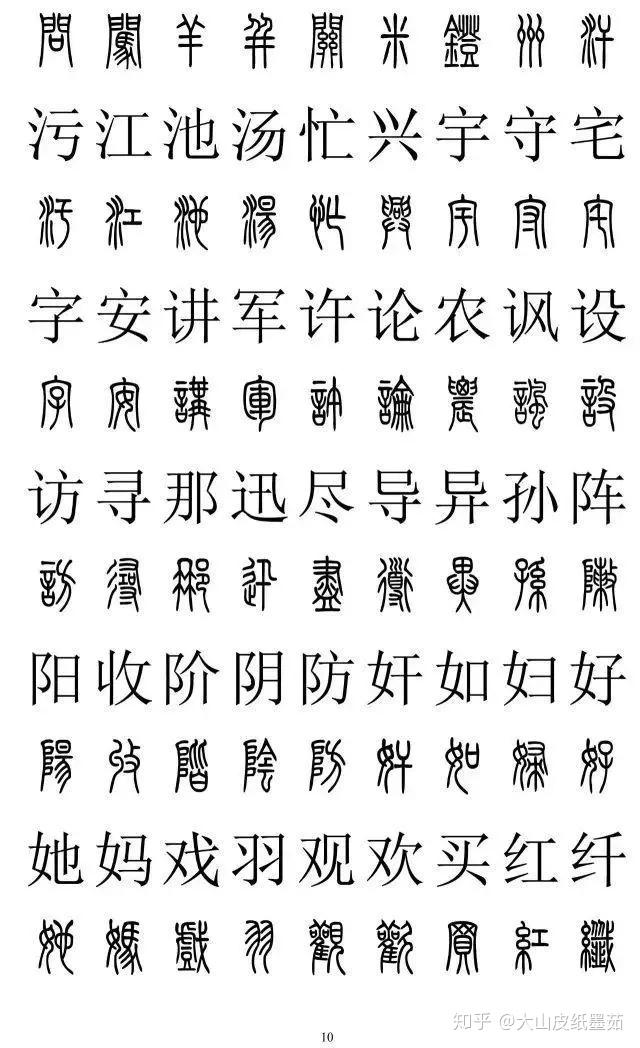 問 闖 羊 并 關 米 鐙 州 汗
污 江 池 汤 忙 兴 宇 守 宅
汙 江 池 湯 忙 興 宇 守 宅
字 安 讲 军 许 论 农 讽 设
字 安 講 軍 許 論 農 諷 設
访 寻 那 迅 尽 导 异 孙 阵
訪 尋 那 迅 盡 導 異 孫 陳
阳 收 阶 阴 防 奸 如 妇 好
陽 收 階 陰 防 奸 如 婦 好
她 妈 戏 羽 观 欢 买 红 纤
她 媽 戲 羽 觀 歡 買 紅 纖
知乎 @大山皮纸墨茹
10